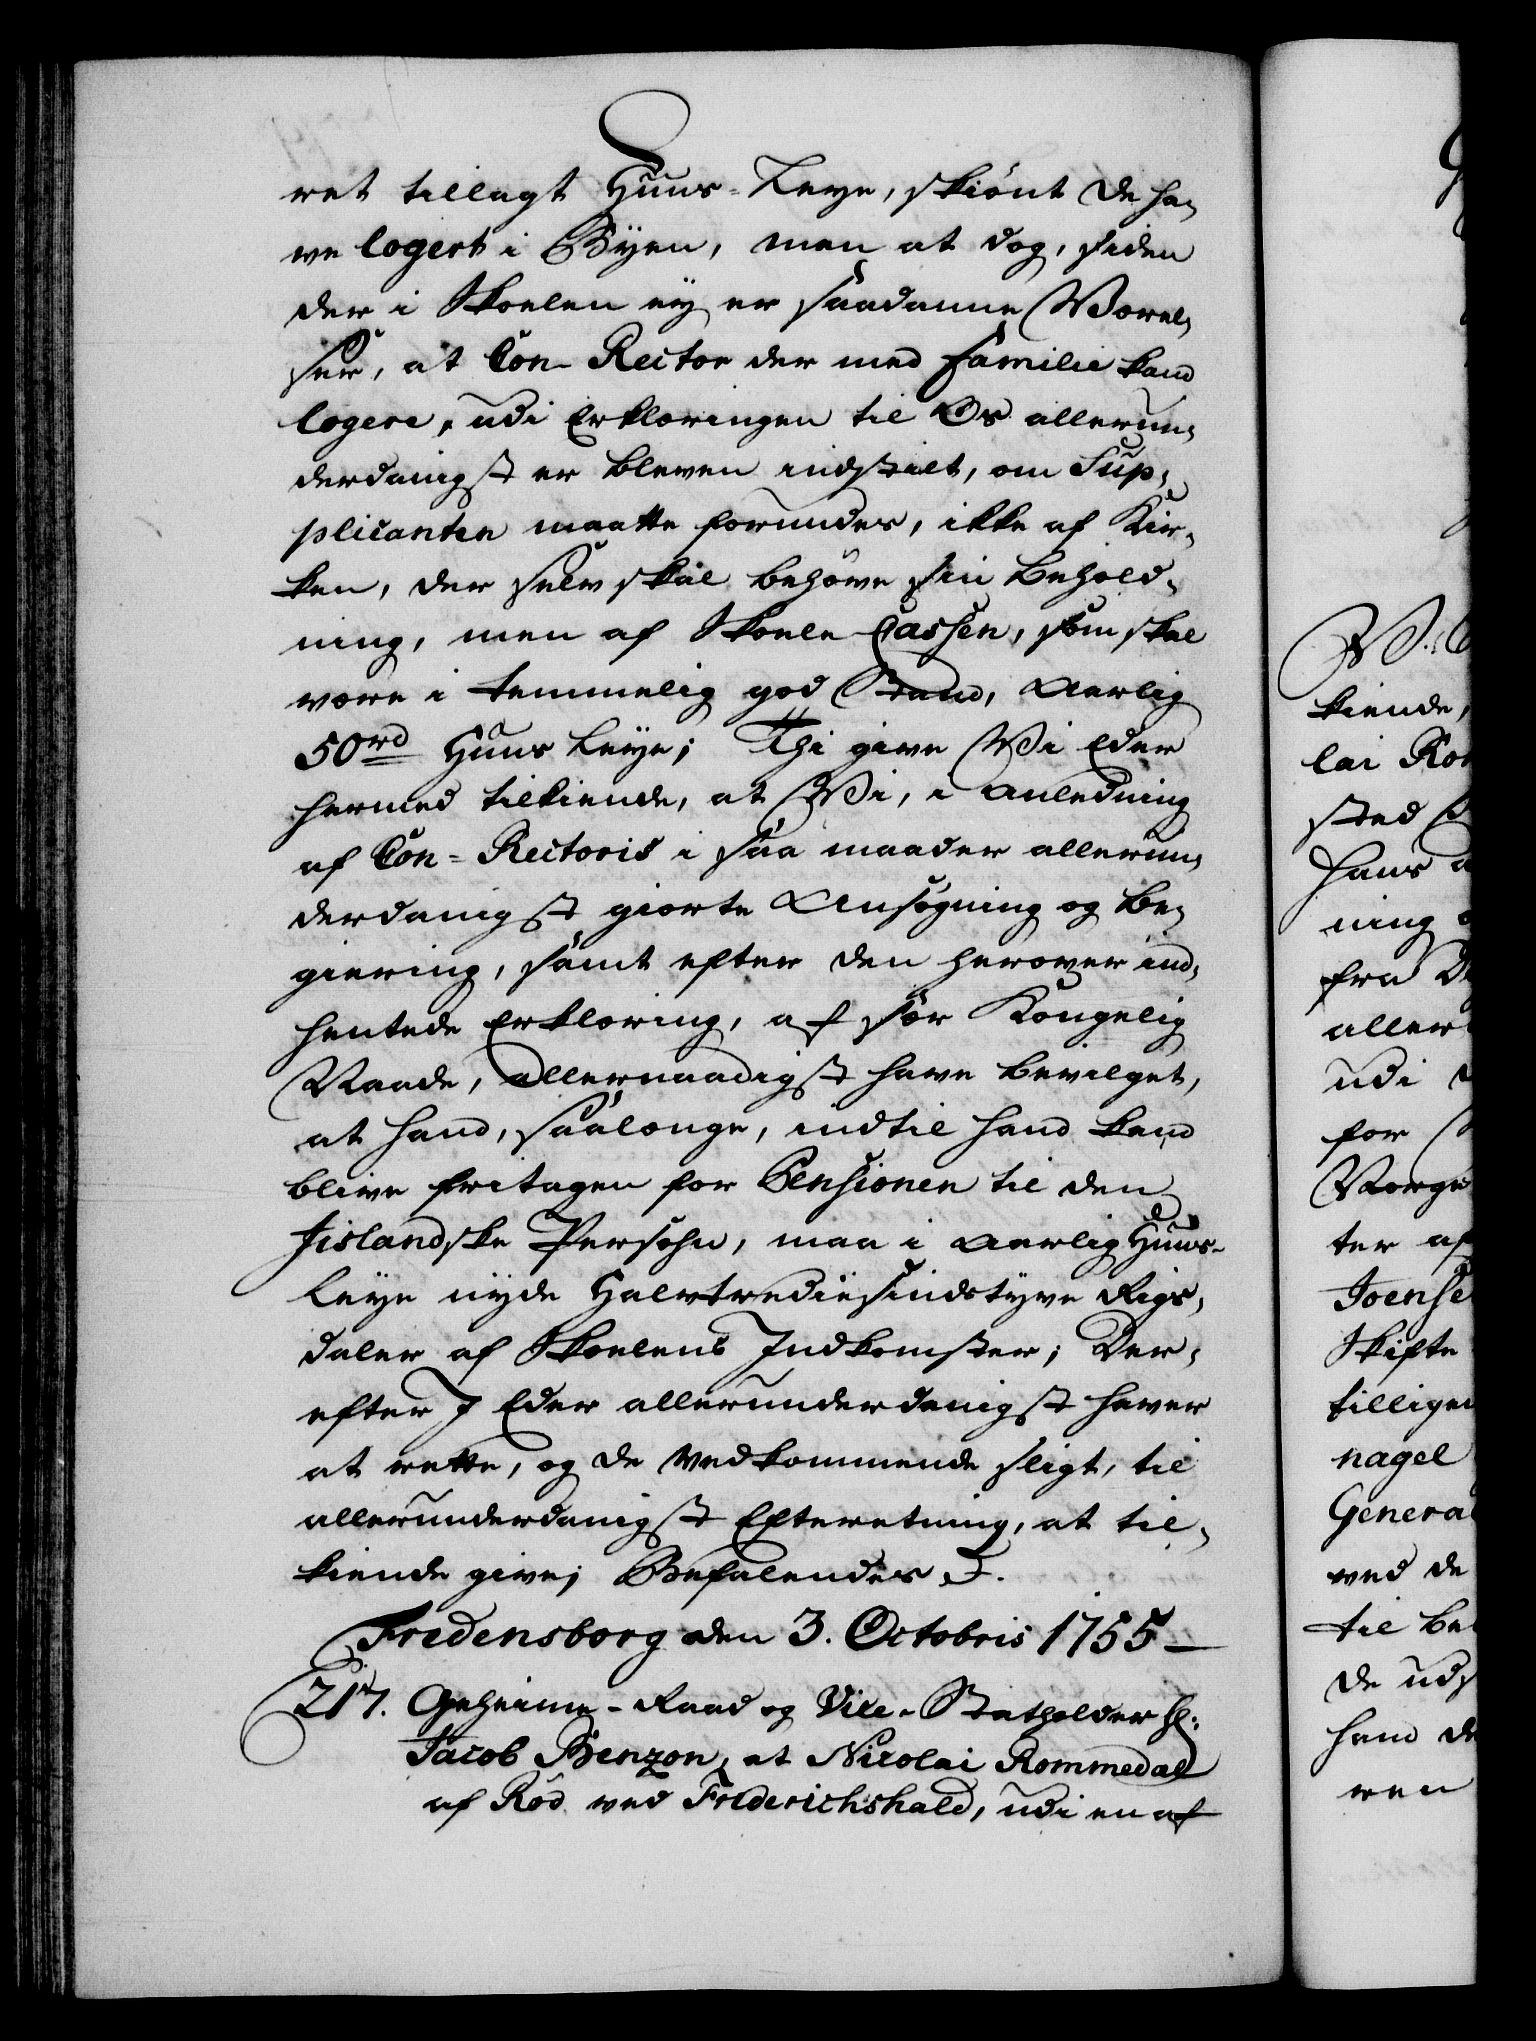 ret tillagt Huus-Leye, skiønt de ha-
ve logert i Byen, men at dog, siden
der i Skoelen ey er saadanne Værel-
ser, at Con-Rector der med Familie kand
logere, udi Erklæringen til Os allerun-
derdanigst er bleven indstilt, om Sup-
plicanten maatte forundes, ikke af Kir-
ken, der selv skal behøve sin Behold-
ning, men af Skoele-Cassen, som skal
være i temmelig god Stand, aarlig
50rd Huus Leye; Thi give Vi Eder
hermed tilkiende, at Vi, i Anledning
af Con-Rectoris i saa maader allerun-
derdanigst giorte Ansøgning og Be-
giering, samt efter den herover ind-
hentede Erklæring, af sær Kongelig
Naade, allernaadigst have bevilget,
at hand, saalænge, indtil hand kand
blive fritagen for Pensionen til den
Jislandske Persohn, maa i aarlig Huus-
Leye nyde Halvtrediesindstyve Rigs-
daler af Skoelens Indkomster; Der-
efter I Eder allerunderdanigst haver
at rette, og de Vedkommende sligt, til
allerunderdanigst Efteretning, at til-
kiende give; Befalendes
Fredensborg den 3. Octobris 1755
217. Geheime-Raad og Vice-Statholder H:
Jacob Benzon, at Nicolai Rommedal
af Rød ved Friderichshald, udi en af
kiende,
lai
sted
hans
ning
fra
aller
udi
for
Norge
ter af
Joense
Skifte
tillige
nagel
Genera
ved de
til be
de uds
hand de
ren